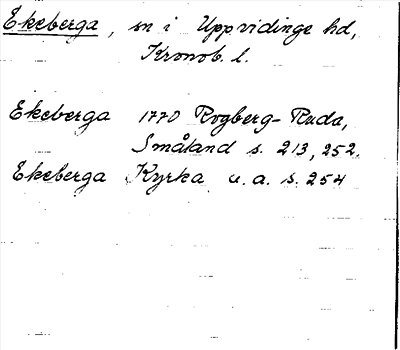 Ekeberga, sn i Uppvidinge hd,
Kronob. l.
Ekeberga 1770 Rogberg-Ruda,
Småland s. 213, 252.
Ekeberga Kyrka u. a. s. 254